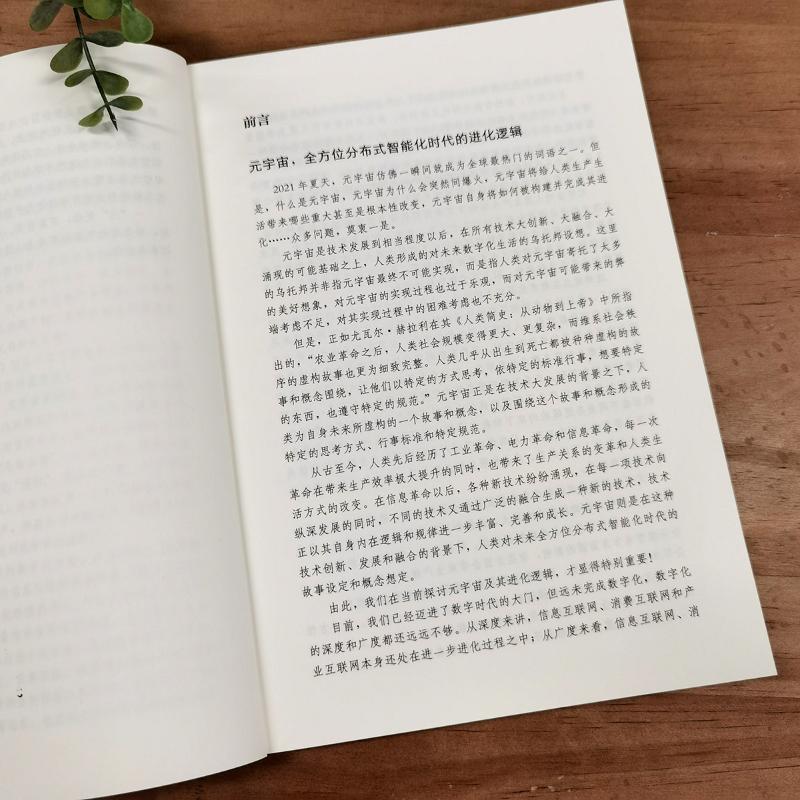 前言
元宇宙，全方位分布式智能化时代的进化逻辑
2021年夏天，元宇宙仿佛一瞬间就成为全球最热门的词语之一。但
是，什么是元宇宙，元宇宙为什么会突然间爆火，元宇宙将给人类生产生
活带来哪些重大甚至是根本性改变，元宇宙自身将如何被构建并完成其进
化……众多问题，莫衷一是。
元宇宙是技术发展到相当程度以后，在所有技术大创新、大融合、大
涌现的可能基础之上，人类形成的对未来数字化生活的乌托邦设想。这里
的乌托邦并非指元宇宙最终不可能实现，而是指人类对元宇宙寄托了太多
的美好想象，对元宇宙的实现过程也过于乐观，而对元宇宙可能带来的弊
端考虑不足，对其实现过程中的困难考虑也不充分。
但是，正如尤瓦尔·赫拉利在其《人类简史：从动物到上帝》中所指
出的，“农业革命之后，人类社会规模变得更大、更复杂，而维系社会秩
序的虚构故事也更为细致完整。人类几乎从出生到死亡都被种种虚构的故
事和概念围绕，让他们以特定的方式思考，依特定的标准行事，想要特定
的东西，也遵守特定的规范。”元宇宙正是在技术大发展的背景之下，人
类为自身未来所虚构的一个故事和概念，以及围绕这个故事和概念形成的
特定的思考方式、行事标准和特定规范。
从古至今，人类先后经历了工业革命、电力革命和信息革命，每一次
革命在带来生产效率极大提升的同时，也带来了生产关系的变革和人类生
活方式的改变。在信息革命以后，各种新技术纷纷涌现，在每一项技术向
纵深发展的同时，不同的技术又通过广泛的融合生成一种新的技术，技术
正以其自身内在逻辑和规律进一步丰富、完善和成长。元宇宙则是在这种
技术创新、发展和融合的背景下，人类对未来全方位分布式智能化时代的
故事设定和概念想定。
由此，我们在当前探讨元宇宙及其进化逻辑，才显得特别重要！
目前，我们已经迈进了数字时代的大门，但远未完成数字化，数字化
的深度和广度都还远远不够。从深度来讲，信息互联网、消费互联网和产
业互联网本身还处在进一步进化过程之中；从广度来看，信息互联网、消